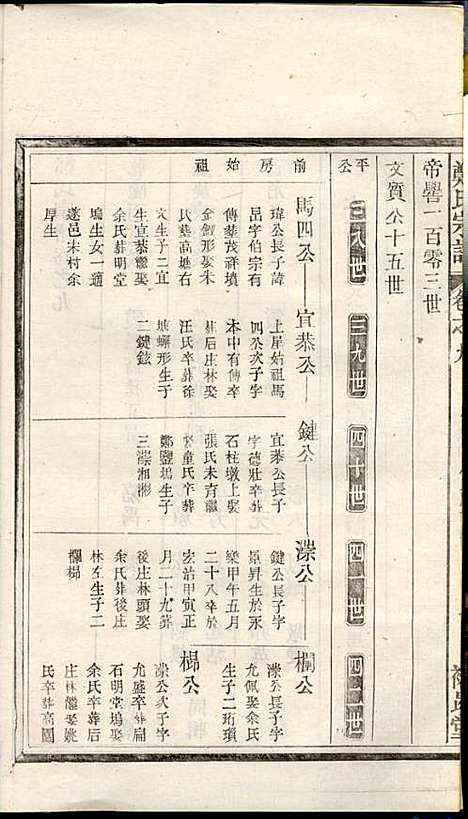 鄭氏宗譜
卷之九
帝嚳一百零三世
文質公十五世
平公
三八世
三九世
四十世
四一世
四二世
前房始祖
馬四公
瑋公長子諱
昂字伯宗有
傳葬茂祥塡
金釵形娶朱
氏葬高塘右
文生子二宜
生宜㳟繼娶
余氏葬明堂
塢生女一適
遂邑宋村余
厚生
宜㳟公
上屋始祖馬
四公次子字
本中有傳卒
葬后庄林娶
汪氏卒葬徐
塘蠏形生子
二鍵鉉
鍵公
宜㳟公長子
字德壯卒葬
石柱墩上娶
張氏未育繼
娶童氏卒葬
鄭鹽塢生子
三濴湘彬
濴公
鍵公長子字
景昇生於永
樂甲午五月
二十八卒於
宏治甲寅正
月二十九葬
後庄林頭娶
余氏葬後庄
林左生子二
欄梯
欄公
濴公長子字
允佩娶余氏
生子二珩瑣
梯公
濴公次子字
允盛卒葬扁
石明堂塢娶
余氏卒葬后
庄林繼娶姚
氏卒葬高園